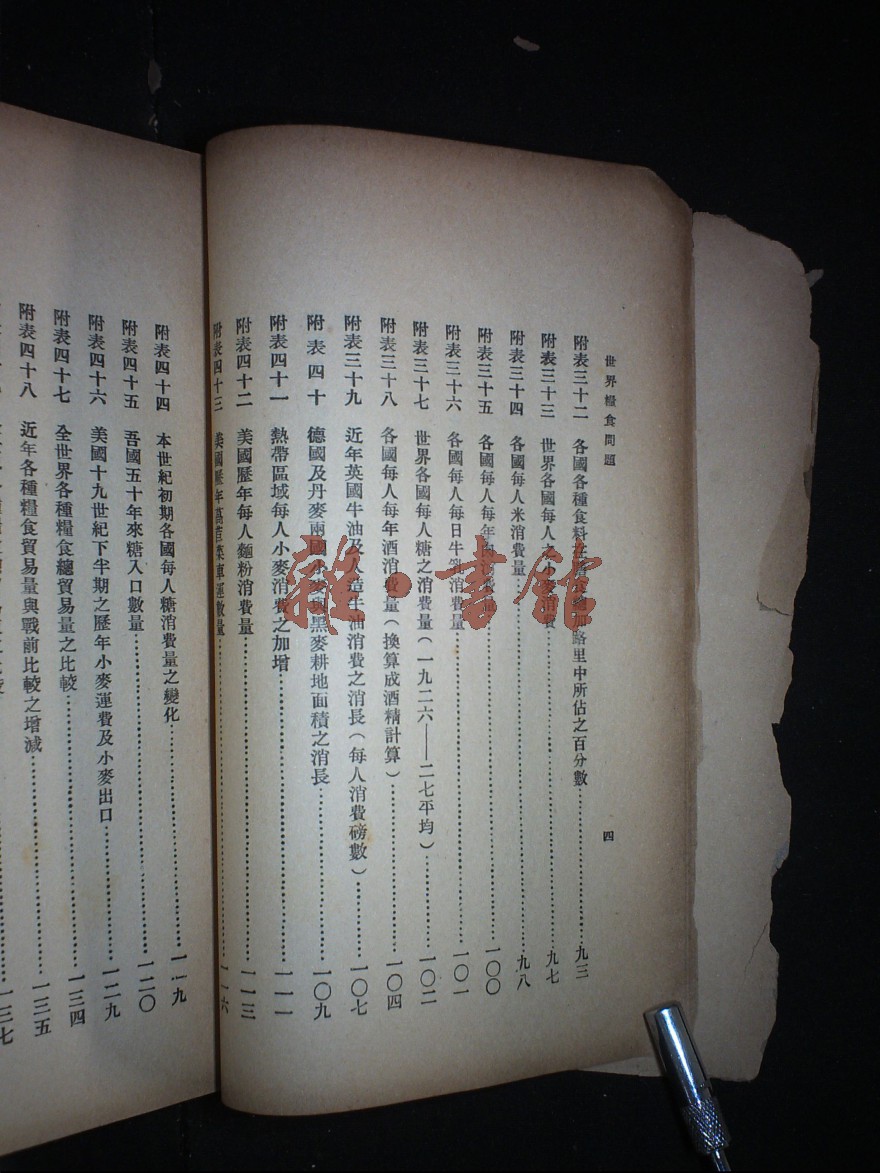 世界糧食問題
四
附表三十二 各國各種食料在 食總加路里中所佔之百分數……九三
附表三十三 世界各國每人之小麥消費……九七
附表三十四 各國每人米消費量……九八
附表三十五 各國每人每年 消費量……一〇〇
附表三十六 各國每人每日牛乳消費量……一〇一
附表三十七 世界各國每人糖之消費量(一九二六——二七平均)……一〇二
附表三十八 各國每人每年酒消費量(換算成酒精計算)……一〇四
附表三十九 近年英國牛油及人造牛油消費之消長(每人消費磅數)……一〇七
附表四十 德國及丹麥兩國小麥與黑麥耕地面積之消長……一〇九
附表四十一 熱帶區域每人小麥消費之加增……一一一
附表四十二 美國歷年每人麵粉消費量……一一三
附表四十三 美國歷年萵苣菜車運數量……一一六
附表四十四 本世紀初期各國每人糖消費量之變化……一一九
附表四十五 吾國五十年來糖入口數量……一二〇
附表四十六 美國十九世紀下半期之歷年小麥運費及小麥出口……一二九
附表四十七 全世界各種糧食總貿易量之比較……一三四
附表四十八 近年各種糧食貿易量與戰前比較之增減……一三五
一三七
雜·書館